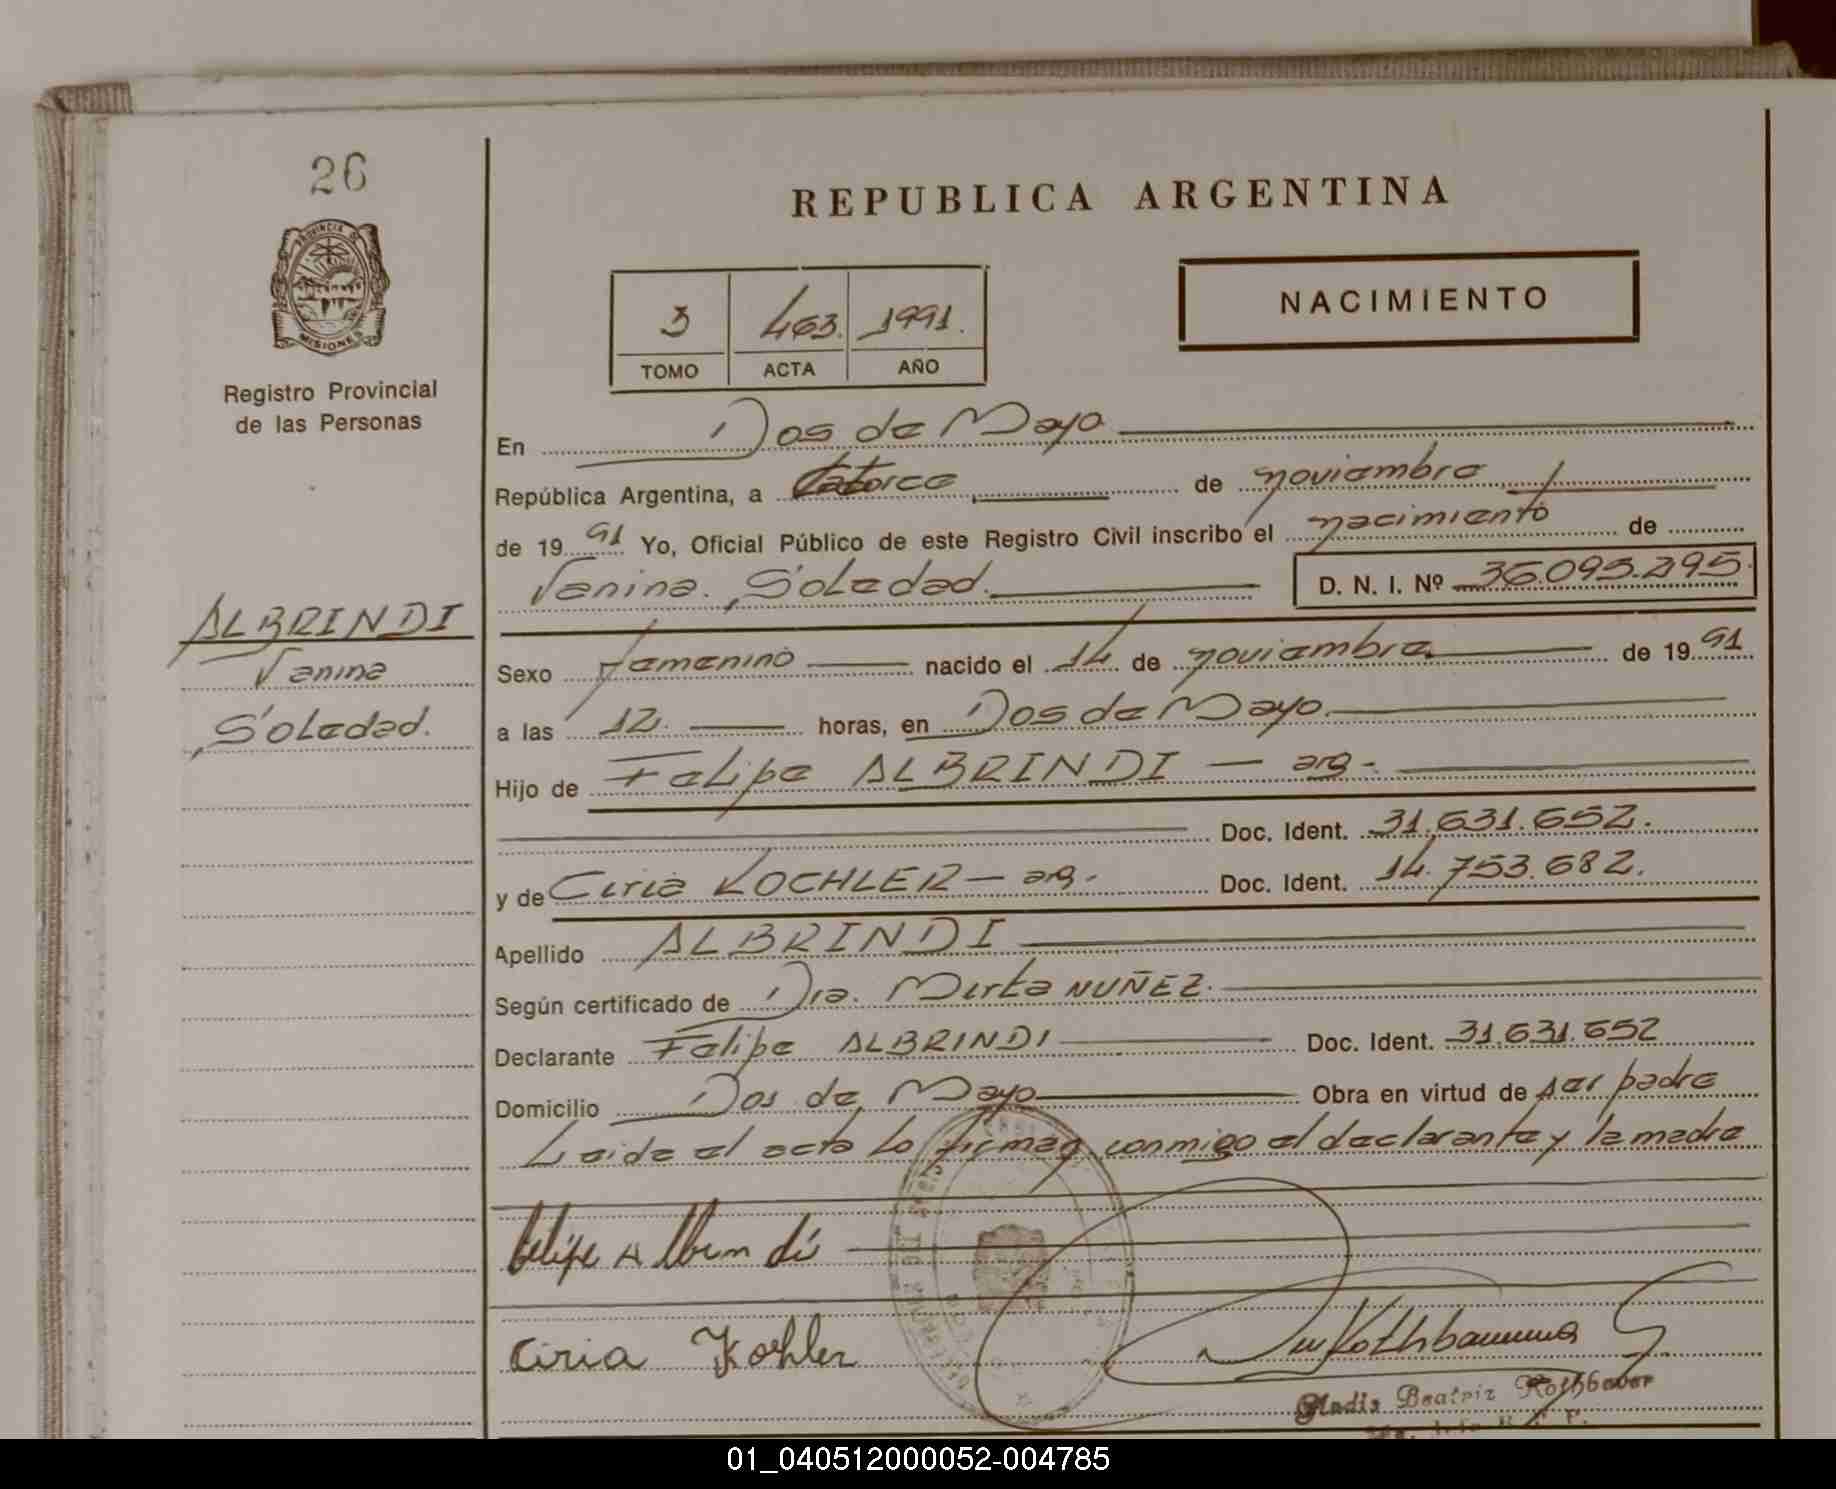 26
REPUBLICA ARGENTINA
PROVINCIA DE
MISIONES
NACIMIENTO
3 463. 1991.
TOMO ACTA AÑO
Registro Provincial
de las Personas
En Dos de Mayo
República Argentina, a Catorce de noviembre
de 19 91 Yo, Oficial Público de este Registro Civil inscribo el nacimiento de
Vanina Soledad. D. N. I. Nº 36.095.295.
ALBRINDI
Vanina
Soledad.
Sexo femenino nacido el 14 de noviembre de 19 91
a las 12. horas, en Dos de Mayo.
Hijo de Felipe ALBRINDI — arg -.
Doc. Ident. 31.631.652.
y de Ciria KOCHLER — arg. Doc. Ident. 14.753.682.
Apellido ALBRINDI
Según certificado de Dra. Mirta NUÑEZ.
Declarante Felipe ALBRINDI Doc. Ident. 31.631.652
Domicilio Dos de Mayo Obra en virtud de ser padre
Leida el acta la firman conmigo el declarante y la madre
Felipe Albrindi
Ciria Koehler
Gladis Beatriz
01_040512000052-004785